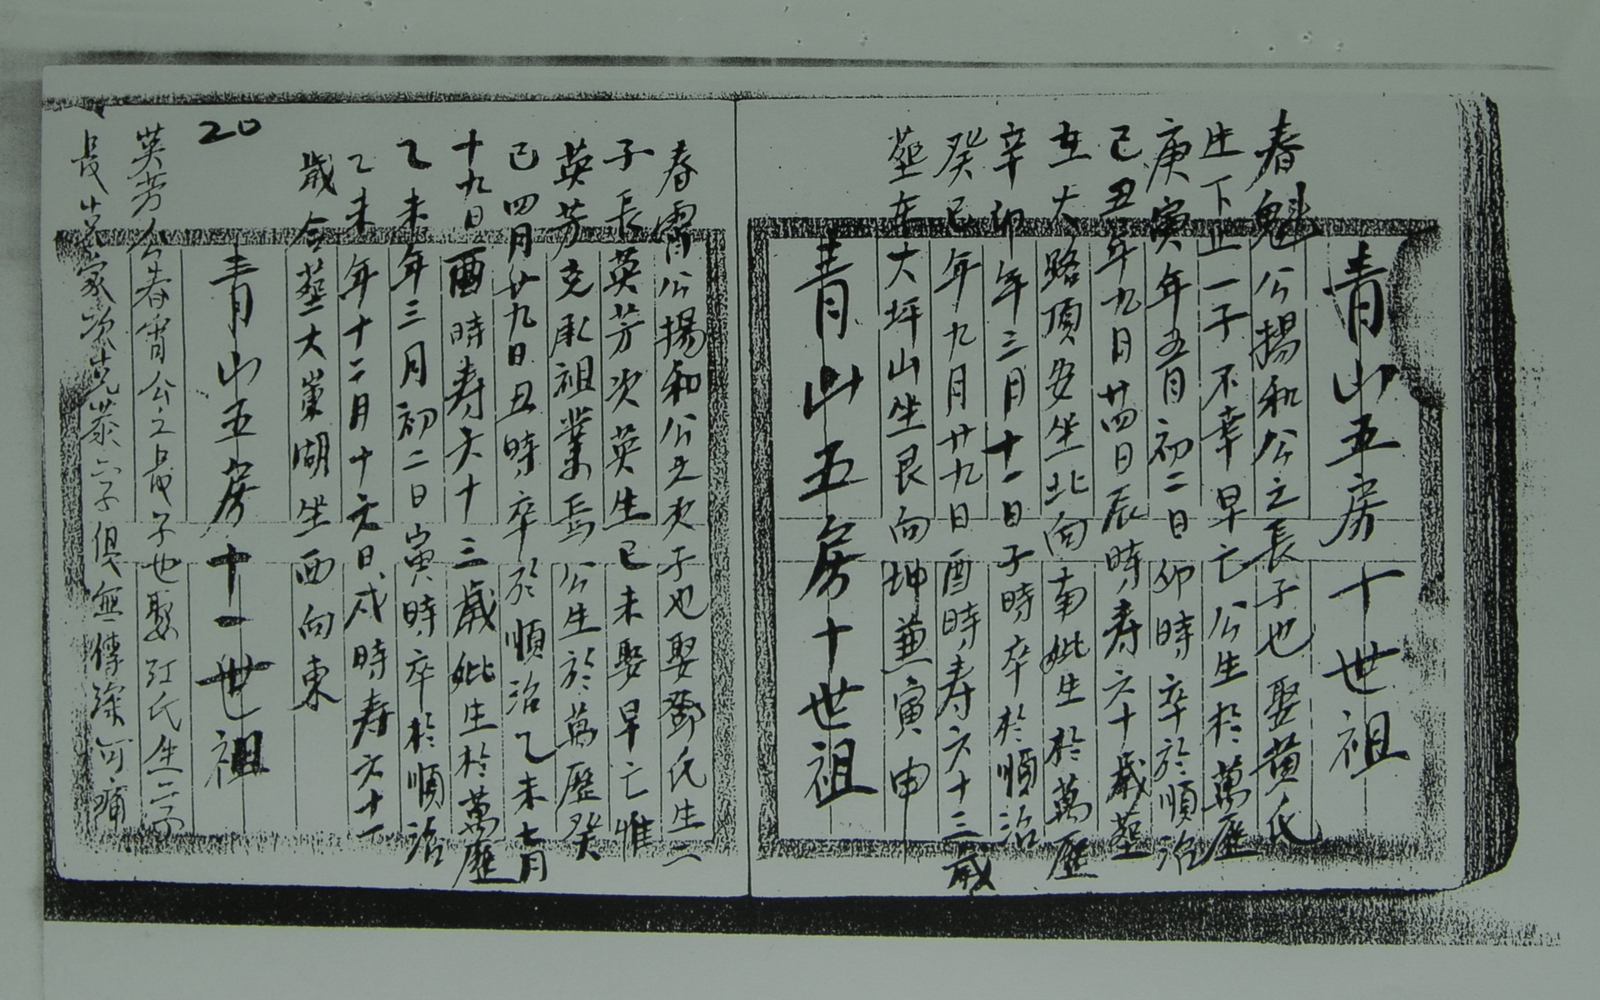 青山五房十世祖
春魁公揚和公之長子也娶黃氏
生下止一子不幸早亡公生於萬歷
庚寅年五月初二日卯時卒於順治
己丑年九月廿四日辰時壽六十歲葬
在大路頂安坐北向南妣生於萬歷
辛卯年三月十一日子時卒於順治
癸巳年九月廿九日酉時寿六十三歲
葬在大坪山坐艮向坤兼寅申
青山五房十世祖
春霄公揚和公之次子也娶鄧氏生二
子長英芳次英生已未娶早亡惟
英芳克承祖業焉公生於萬歷癸
巳四月廿九日丑時卒於順治乙未七月
十九日酉時寿六十三歲妣生於萬歷
乙未年三月初二日寅時卒於順治
乙未年十二月十六日戌時寿六十一
歲合葬大東湖坐西向東
青山五房十一世祖
20
英芳公春霄公之長子也娶江氏生二子
長 家次 俱無傳深可